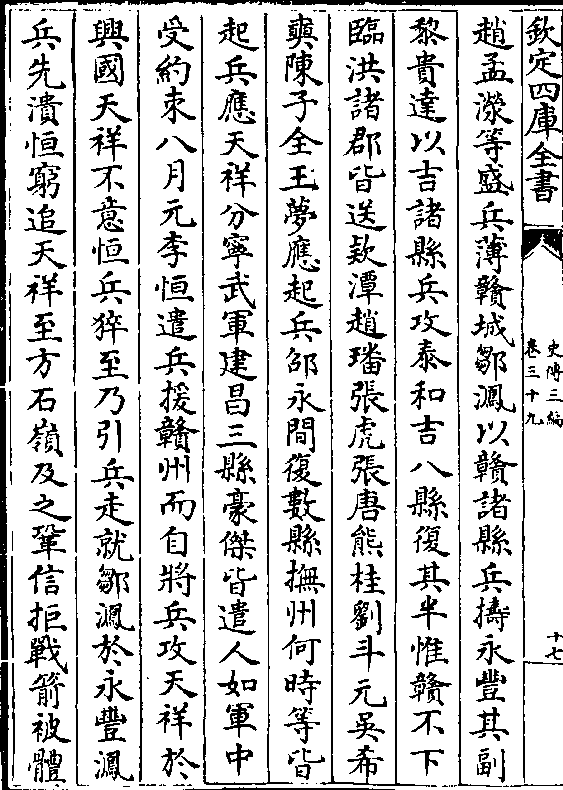 欽定四庫全書
史傳三編
卷三十九
十七
趙孟濚等盛兵薄贛城鄒㵯以贛諸縣兵擣永豐其副
黎貴達以吉諸縣兵攻泰和吉八縣復其半惟贛不下
臨洪諸郡皆送欵潭趙璠張虎張唐熊桂劉斗元吳希
奭陳子全王夢應起兵邵永間復數縣撫州何時等皆
起兵應天祥分寧武軍建昌三縣豪傑皆遣人如軍中
受約束八月元李恒遣兵援贛州而自將兵攻天祥於
興國天祥不意恒兵猝至乃引兵走就鄒㵯於永豐㵯
兵先潰恒窮追天祥至方石嶺及之鞏信拒戰箭被體